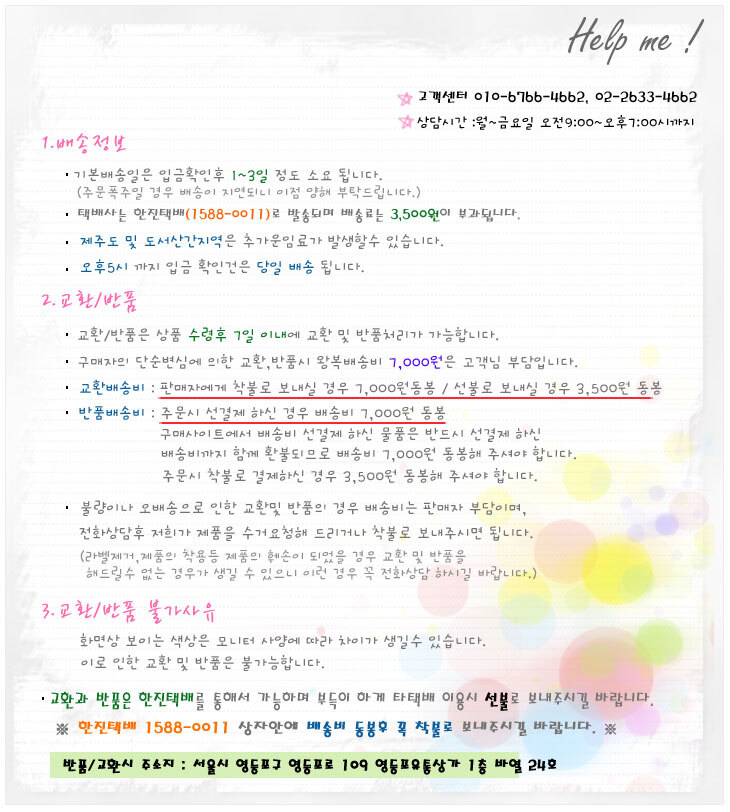 Help me !
고객센터 010-6766-4662, 02-2633-4662
상담시간 :월~금요일 오전9:00~오후7:00시까지
1.배송정보
· 기본배송일은 입금확인후 1~3일 정도 소요 됩니다.
(주문폭주일 경우 배송이 지연되니 이점 양해 부탁드립니다.)
· 택배사는 한진택배(1588-0011)로 발송되며 배송료는 3,500원이 부과됩니다.
· 제주도 및 도서산간지역은 추가운임료가 발생할수 있습니다.
· 오후5시 까지 입금 확인건은 당일 배송 됩니다.
2.교환/반품
· 교환/반품은 상품 수령후 7일 이내에 교환 및 반품처리가 가능합니다.
· 구매자의 단순변심에 의한 교환,반품시 왕복배송비 7,000원은 고객님 부담입니다.
· 교환배송비 : 판매자에게 착불로 보내실 경우 7,000원동봉 / 선불로 보내실 경우 3,500원 동봉
· 반품배송비 : 주문시 선결제 하신 경우 배송비 7,000원 동봉
구매사이트에서 배송비 선결제 하신 물품은 반드시 선결제 하신
배송비까지 함께 환불되므로 배송비 7,000원 동봉해 주셔야 합니다.
주문시 착불로 결제하신 경우 3,500원 동봉해 주셔야 합니다.
· 불량이나 오배송으로 인한 교환및 반품의 경우 배송비는 판매자 부담이며,
전화상담후 저희가 제품을 수거요청해 드리거나 착불로 보내주시면 됩니다.
(라벨제거,제품의 착용등 제품의 훼손이 되었을 경우 교환 및 반품을
해드릴수 없는 경우가 생길 수 있으니 이런 경우 꼭 전화상담 하시길 바랍니다.)
3.교환/반품 불가사유
화면상 보이는 색상은 모니터 사양에 따라 차이가 생길수 있습니다.
이로 인한 교환 및 반품은 불가능합니다.
· 교환과 반품은 한진택배를 통해서 가능하며 부득이 하게 타택배 이용시 선불로 보내주시길 바랍니다.
※ 한진택배 1588-0011 상자안에 배송비 동봉후 꼭 착불로 보내주시길 바랍니다. ※
반품/교환시 주소지 : 서울시 영등포구 영등포로 109 영등포유통상가 1층 바열 24호